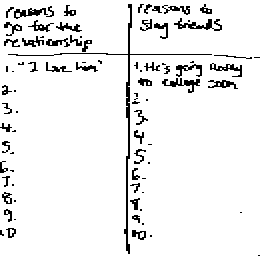 reasons to
go for the
relationship
1. "I love him"
2.
3.
4.
5.
6.
7.
8.
9.
10
reasons to
stay friends
1. He's going away
to college soon
2.
3.
4.
5.
6.
7.
8.
9.
10.